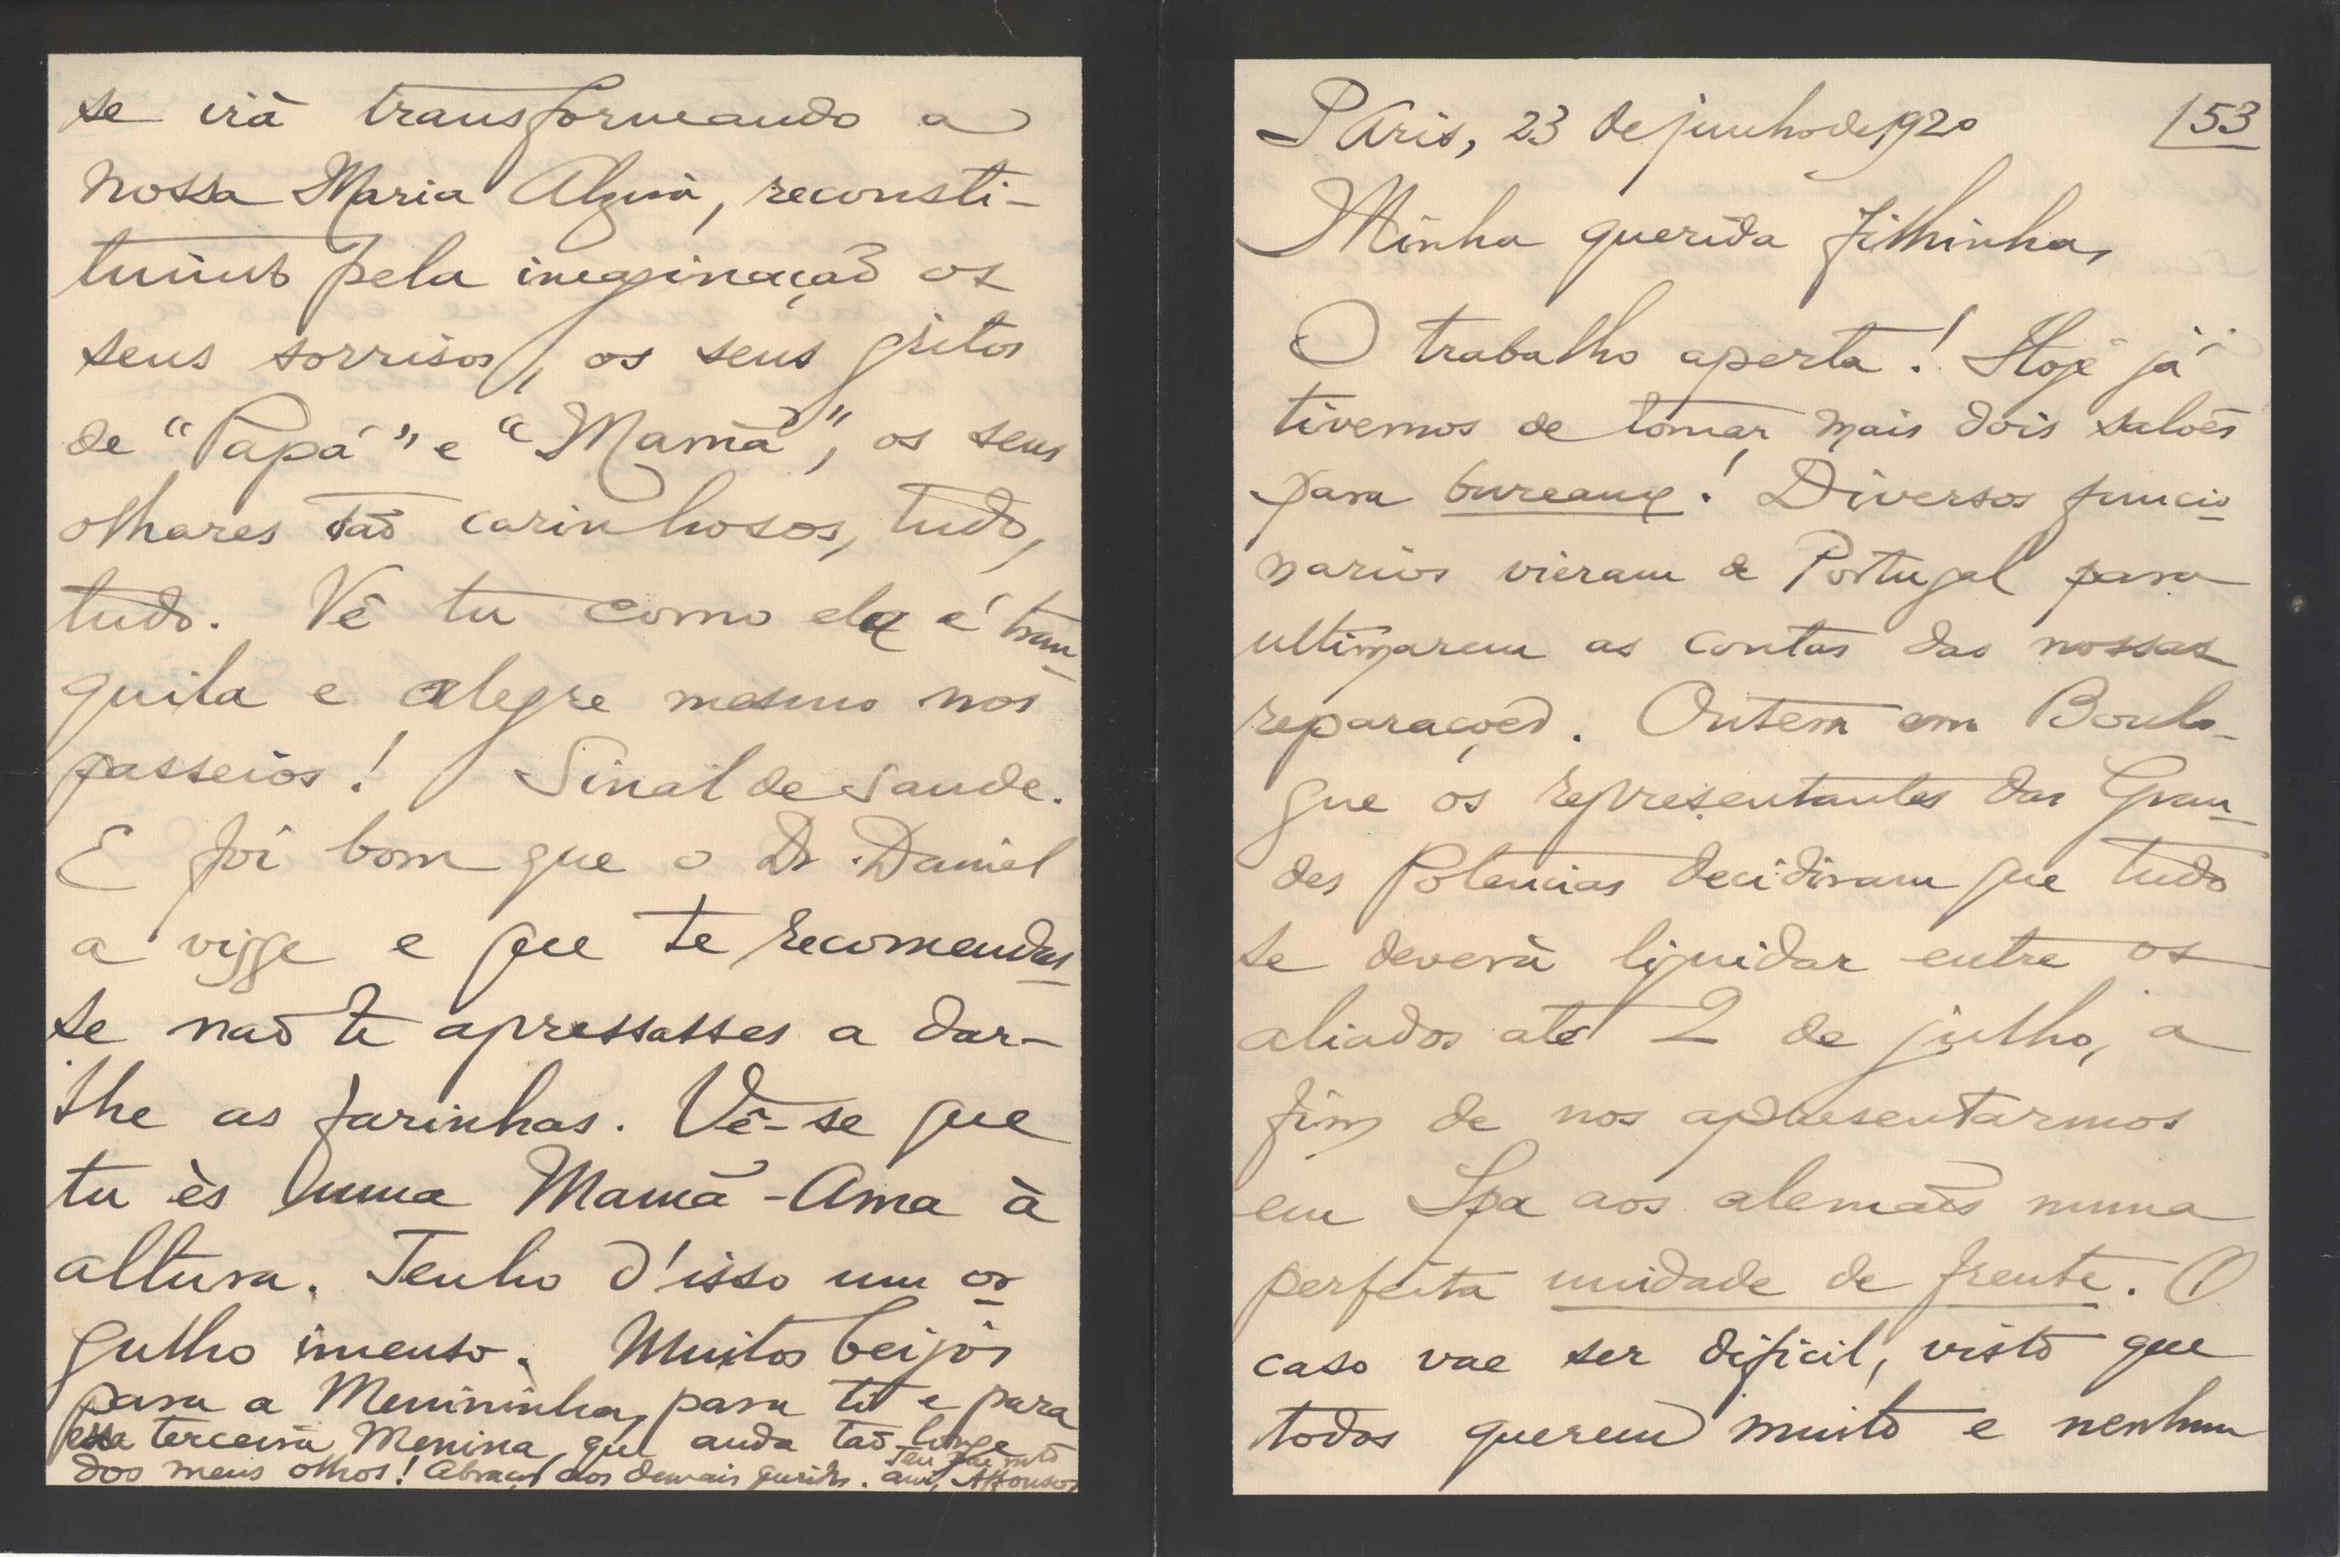 153
Paris, 23 de junho de 1920
Minha querida filhinha,
O trabalho aperta! Hoje já
tivemos de tomar mais dois salões
para bureaux! Diversos funcio
narios vieram de Portugal para
ultimarem as contas das nossas
reparações. Ontem em Boulo-
gne os representantes das Gran
des Potencias decidiram que tudo
se deverà liquidar entre os
aliados até 2 de julho, a
fim de nos apresentarmos
em Spa aos alemães numa
perfeita unidade de frente. O
caso vae ser dificil, visto que
todos querem muito e nenhum
se irà transformando a
nossa Maria Alzira, reconsti-
tuindo pela imaginação os
seus sorrisos, os seus gritos
de "Papá" e "Mamã", os seus
olhares tão carinhosos, tudo,
tudo. Vê tu como ela é tran
quila e alegre mesmo nos
passeios! Sinal de saude.
E foi bom que o Dr. Daniel
a visse e que te recomendas
se não te apressasses a dar-
lhe as farinhas. Vê-se que
tu ès uma Mamã-Ama à
altura. Tenho d'isso um or
gulho imenso. Muitos beijos
para a Menininha, para ti e para
essa terceira Menina que anda tão longe
dos meus olhos! Abraços aos demais queridos. Teu Pae mto
amo Affonso